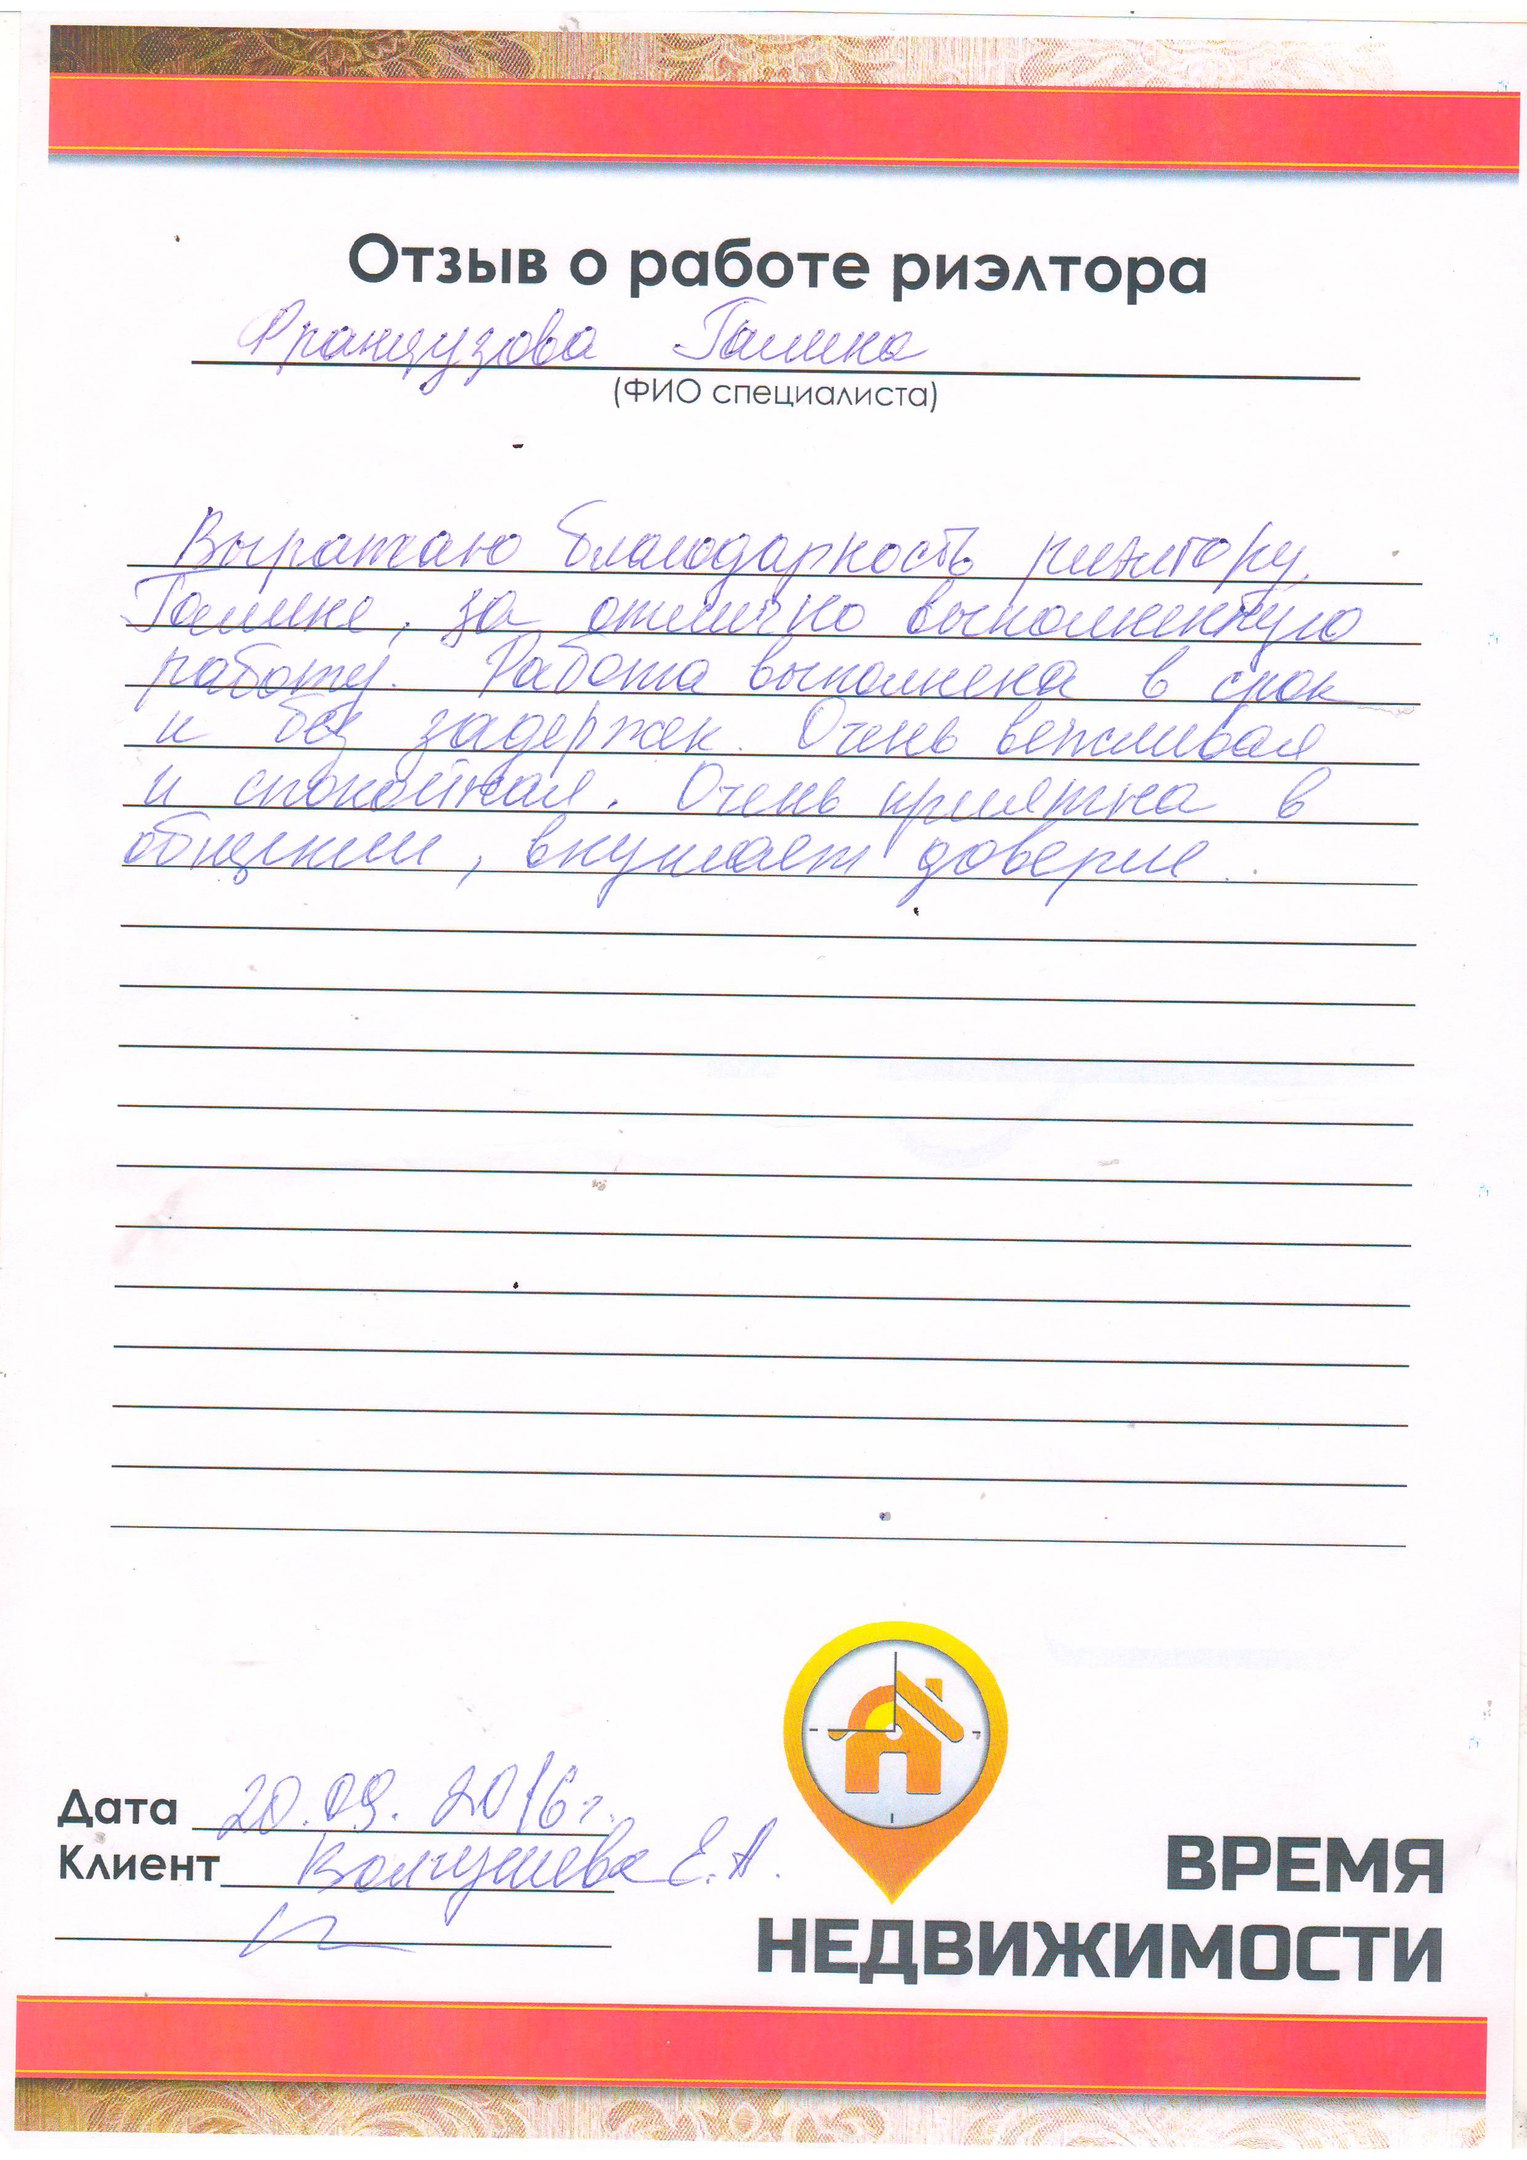 Отзыв о работе риэлтора
Французова Галина
(ФИО специалиста)
Выражаю благодарность риэлтору
Галине, за отлично выполненную
работу. Работа выполнена в срок
и без задержек. Очень вежливая
и спокойная. Очень приятна в
общении, внушает доверие.
Дата 20.09.2016г.
Клиент Е.А.
ВРЕМЯ
НЕДВИЖИМОСТИ